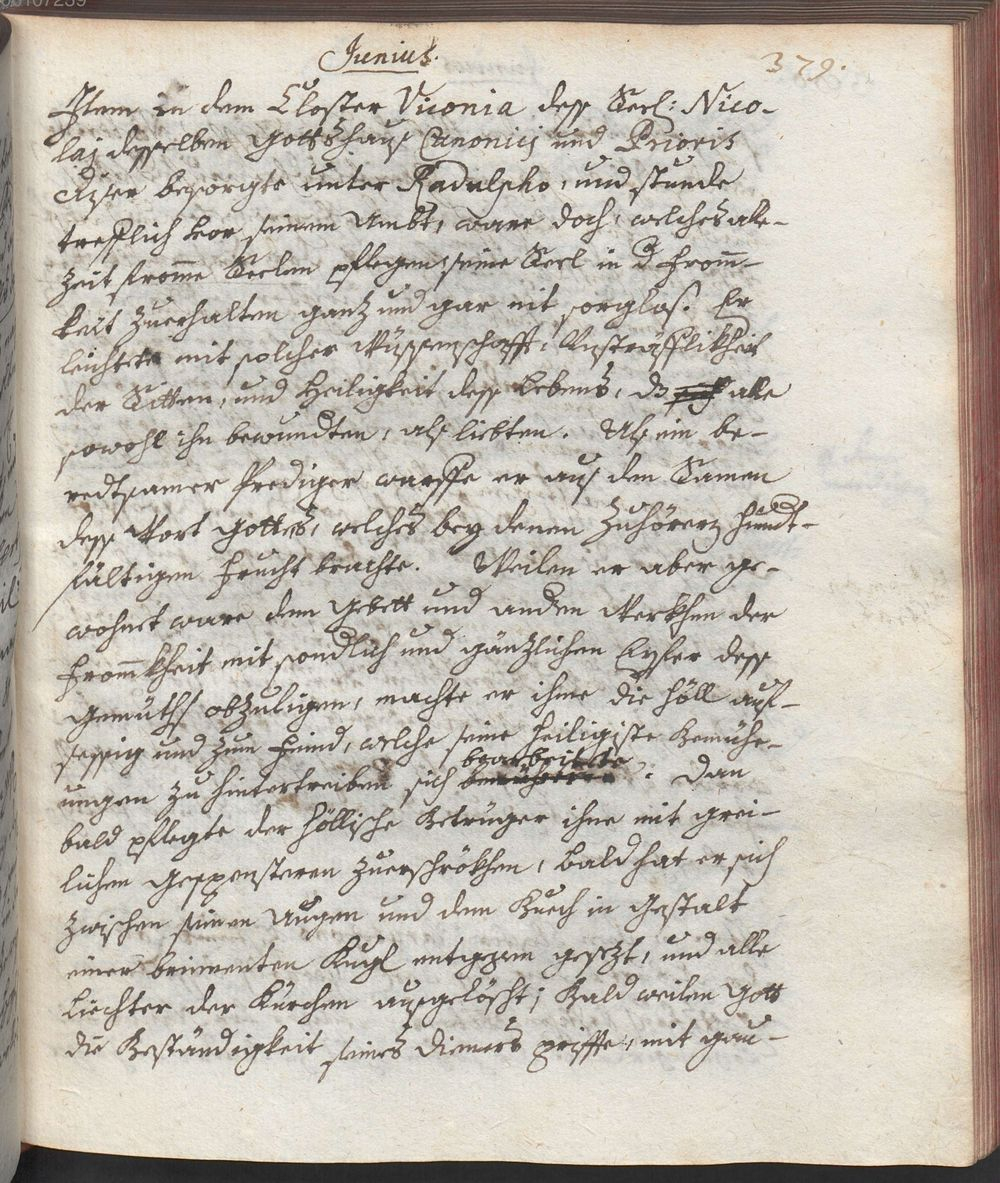 00107239
Junius.
379.
Item in dem Closter Viconia dess Seel: Nico-
laj desselben Gottshaus Canonici und Prioris
Diser besorgte unter Radulpho, und stunde
trefflich vor seinem Ambt, ware doch, welches alle-
zeit fromme Seelen pflegen, seine Seel in d fromm-
keit zuerhalten ganz und gar nit sorglos. Er
leichtete mit solcher Wüssenschafft, Unsträfflikheit
der Sitten, und Heiligkeit dess Lebens, dz alle
sowohl ihn bewundten, als liebten. Als ein be-
redtsamer Prediger warffe er aus den Samen
dess Wort Gottes, welches bey denen Zuhörern hundt-
fältigen Frucht brachte. Weilen er aber ge-
wohnet ware dem Gebett und anden Werkhen der
Frommkheit mit sondlich und gänzlichen Eyfer dess
Gemüths obzuligen, machte er ihme die Höll auf-
sessig und zum Feind, welche seine heiligiste Bemühe-
ungen zu hintertreiben sich bearbeitete. Dan
bald pflegte der höllische Betrüger ihne mit grei-
lichen Gespensteren zuerschrökhen, bald hat er sich
zwischen seinen Augen und dem Buech in Gestalt
einer brinnenten Kugl entgegen gesezt, und alle
Liechter der Kürchen ausgelöscht; Bald weilen Gott
die Beständigkeit seines Dieners prüffte, mit gau-